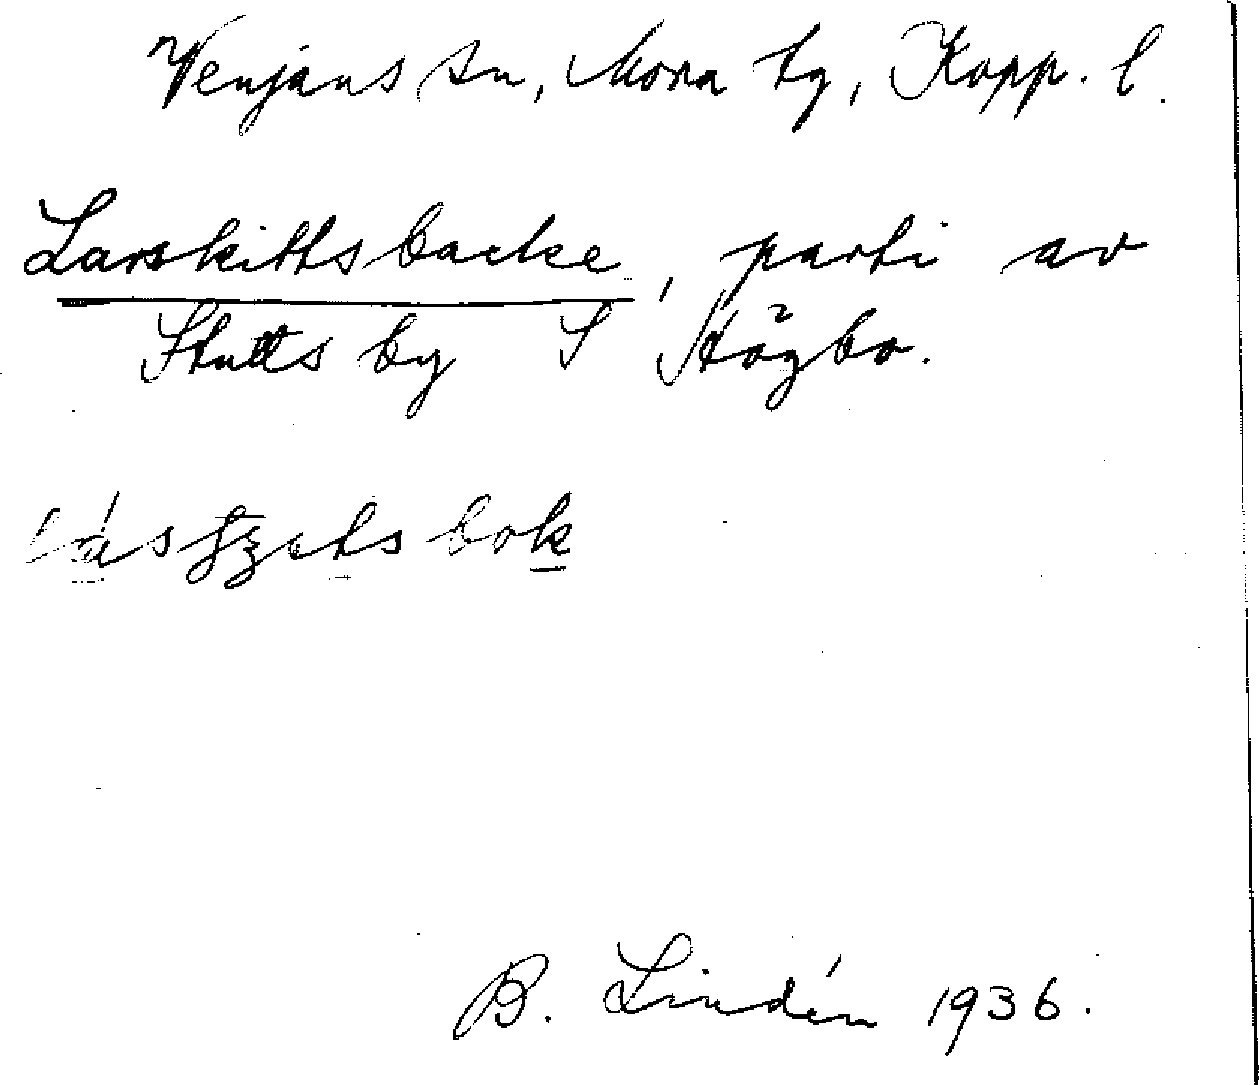 Venjans sn, Mora ty, Kopp. l.
Larskittsbacke, parti av
Stutts by S Högbo.
bok
B. Lindén 1936.